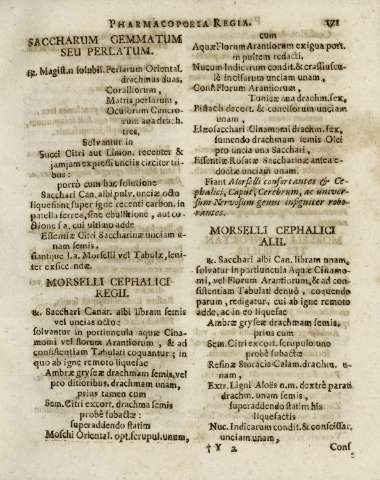 PHARMACOPOEIA REGIA.
SACCHARUM GEMMATUM
SEU PERLATUM.
℞. Magist.n solubil. Perlarum Oriental.
drachmas duas,
Coralliorum,
Matris perlarum,
Oculorum Cancro-
rum ana drach.
tres,
Solvantur in
Succi Citri aut Limon. recenter &
jamjam expressi unciis circiter tri-
bus:
porrò cum hac solutione
Sacchari Can. albi pulv. unciæ octo
liquefiant super igne recenti carbon. in
patella ferrea, sine ebullitione, aut co-
ctione s.a. cui ultimo adde
Essentiæ Citri Saccharinæ unciam u-
nam semis,
fiantque l.a. Morselli vel Tabulæ, leni-
ter exsiccandæ.
MORSELLI CEPHALICI
REGII.
℞. Sacchari Canar. albi libram semis
vel uncias octo:
solvantur in portiuncula aquæ Cina-
momi vel florum Arantiorum, & ad
consistentiam Tabulati coquantur; in
quo ab igne remoto liquefac
Ambræ gryseæ drachmam semis, vel
pro ditioribus, drachmam unam,
prius tamen cum
Sem. Citri excort. drachma semis
probè subactæ:
superaddendo statim
Moschi Oriental. opt. scrupul. unum,
cum
Aquæ Florum Arantiorum exigua port.
in pultem redacti,
Nucum Indicarum condit. & crassiuscu-
lè incisarum unciam unam,
Cond. Florum Arantiorum,
Tunicæ ana drachm. sex,
Pistach decort. & concisorum unciam
unam,
Elæosacchari Cinamomi drachm. sex,
sumendo drachmam semis Olei
pro uncia una Sacchari,
Essentiæ Rosatæ Saccharinæ antea e-
doctæ unciam unam.
Fiant Morselli confortantes & Ce-
phalici, Caput, Cerebrum, ac univer-
sum Nervosum genus insigniter robo-
rantes.
MORSELLI CEPHALICI
ALII.
℞. Sacchari albi Can. libram unam,
solvatur in portiuncula Aquæ Cinamo-
mi, vel Florum Arantiorum, & ad con-
sistentiam Tabulati denuò, coquendo
parum, redigatur, cui ab igne remoto
adde, ac in eo liquefac
Ambræ gryseæ drachmam semis,
prius cum
Sem. Citri excort. scrupulo uno
probè subactæ
Resinæ Storacis Calam. drachm. u-
nam,
Extr. Ligni Aloës n.m. dextrè parati
drachm. unam semis,
superaddendo statim his
liquefactis
Nuc. Indicarum condit. & conscissar.
unciam unam,
† Y 2
Conf